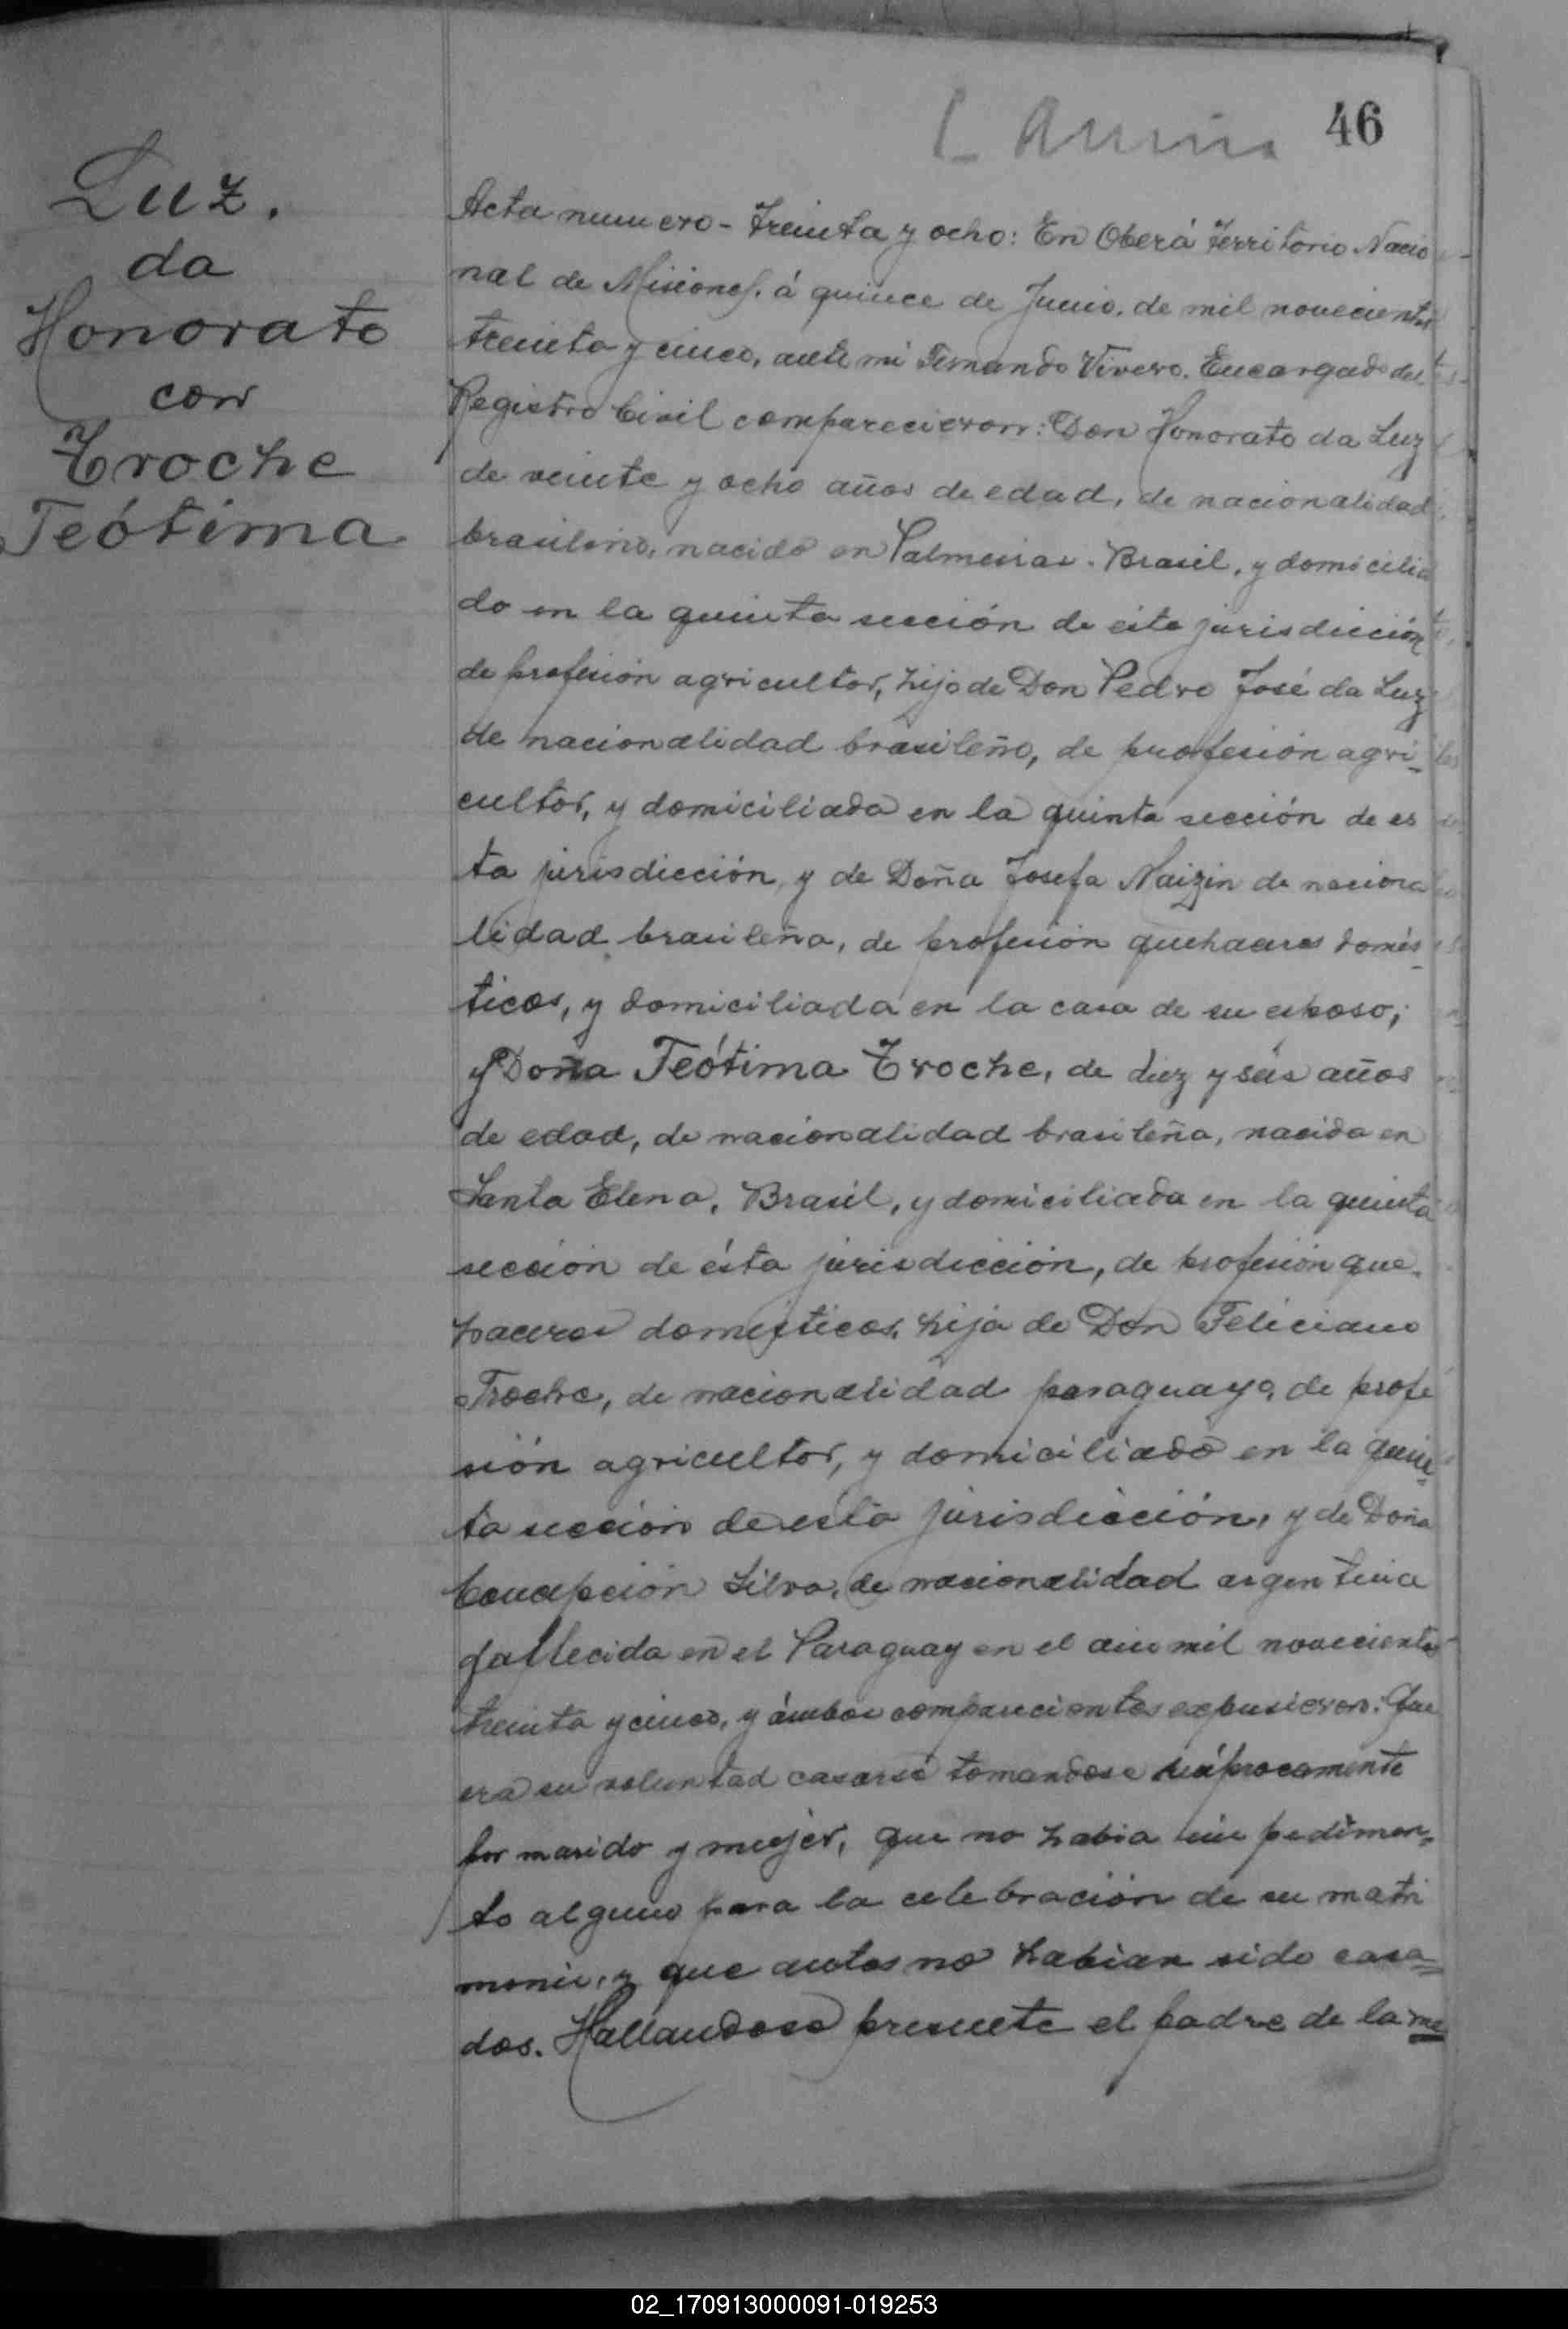 46
Luz.
da
Honorato
con
Troche
Teótima
Acta numero - Treinta y ocho: En Oberá Territorio Nacio
nal de Misiones. á quince de Junio, de mil novecientos
treinta y cinco, ante mi Fernando Vivero. Encargado del
Registro Civil comparecieron: Don Honorato da Luz
de veinte y ocho años de edad, de nacionalidad
brasileño, nacido en Palmeiras. Brasil, y domicilia
do en la quinta sección de esta jurisdicción
de profesión agricultor, hijo de Don Pedro José da Luz
de nacionalidad brasileño, de profesión agri-
cultor, y domiciliado en la quinta sección de es
ta jurisdicción, y de Doña Josefa Naizin de naciona
lidad brasileña, de profesión quehaceres domés-
ticos, y domiciliada en la casa de su esposo;
y Doña Teótima Troche, de diez y seis años
de edad, de nacionalidad brasileña, nacida en
Santa Elena, Brasil, y domiciliada en la quinta
sección de ésta jurisdicción, de profesión que-
haceres domésticos, hija de Don Feliciano
Troche, de nacionalidad paraguayo, de profe
sión agricultor, y domiciliado en la quin-
ta sección de esta jurisdicción, y de Doña
Concepción Silva, de nacionalidad argentina
fallecida en el Paraguay en el año mil novecientos
treinta y cinco, y ámbos comparecientes expusieron: Que
era su voluntad casarse tomandose recíprocamente
por marido y mujer, que no habia impedimen-
to alguno para la celebración de su matri
monio, y que antes no habian sido casa-
dos. Hallandose presente el padre de la me
02_170913000091-019253